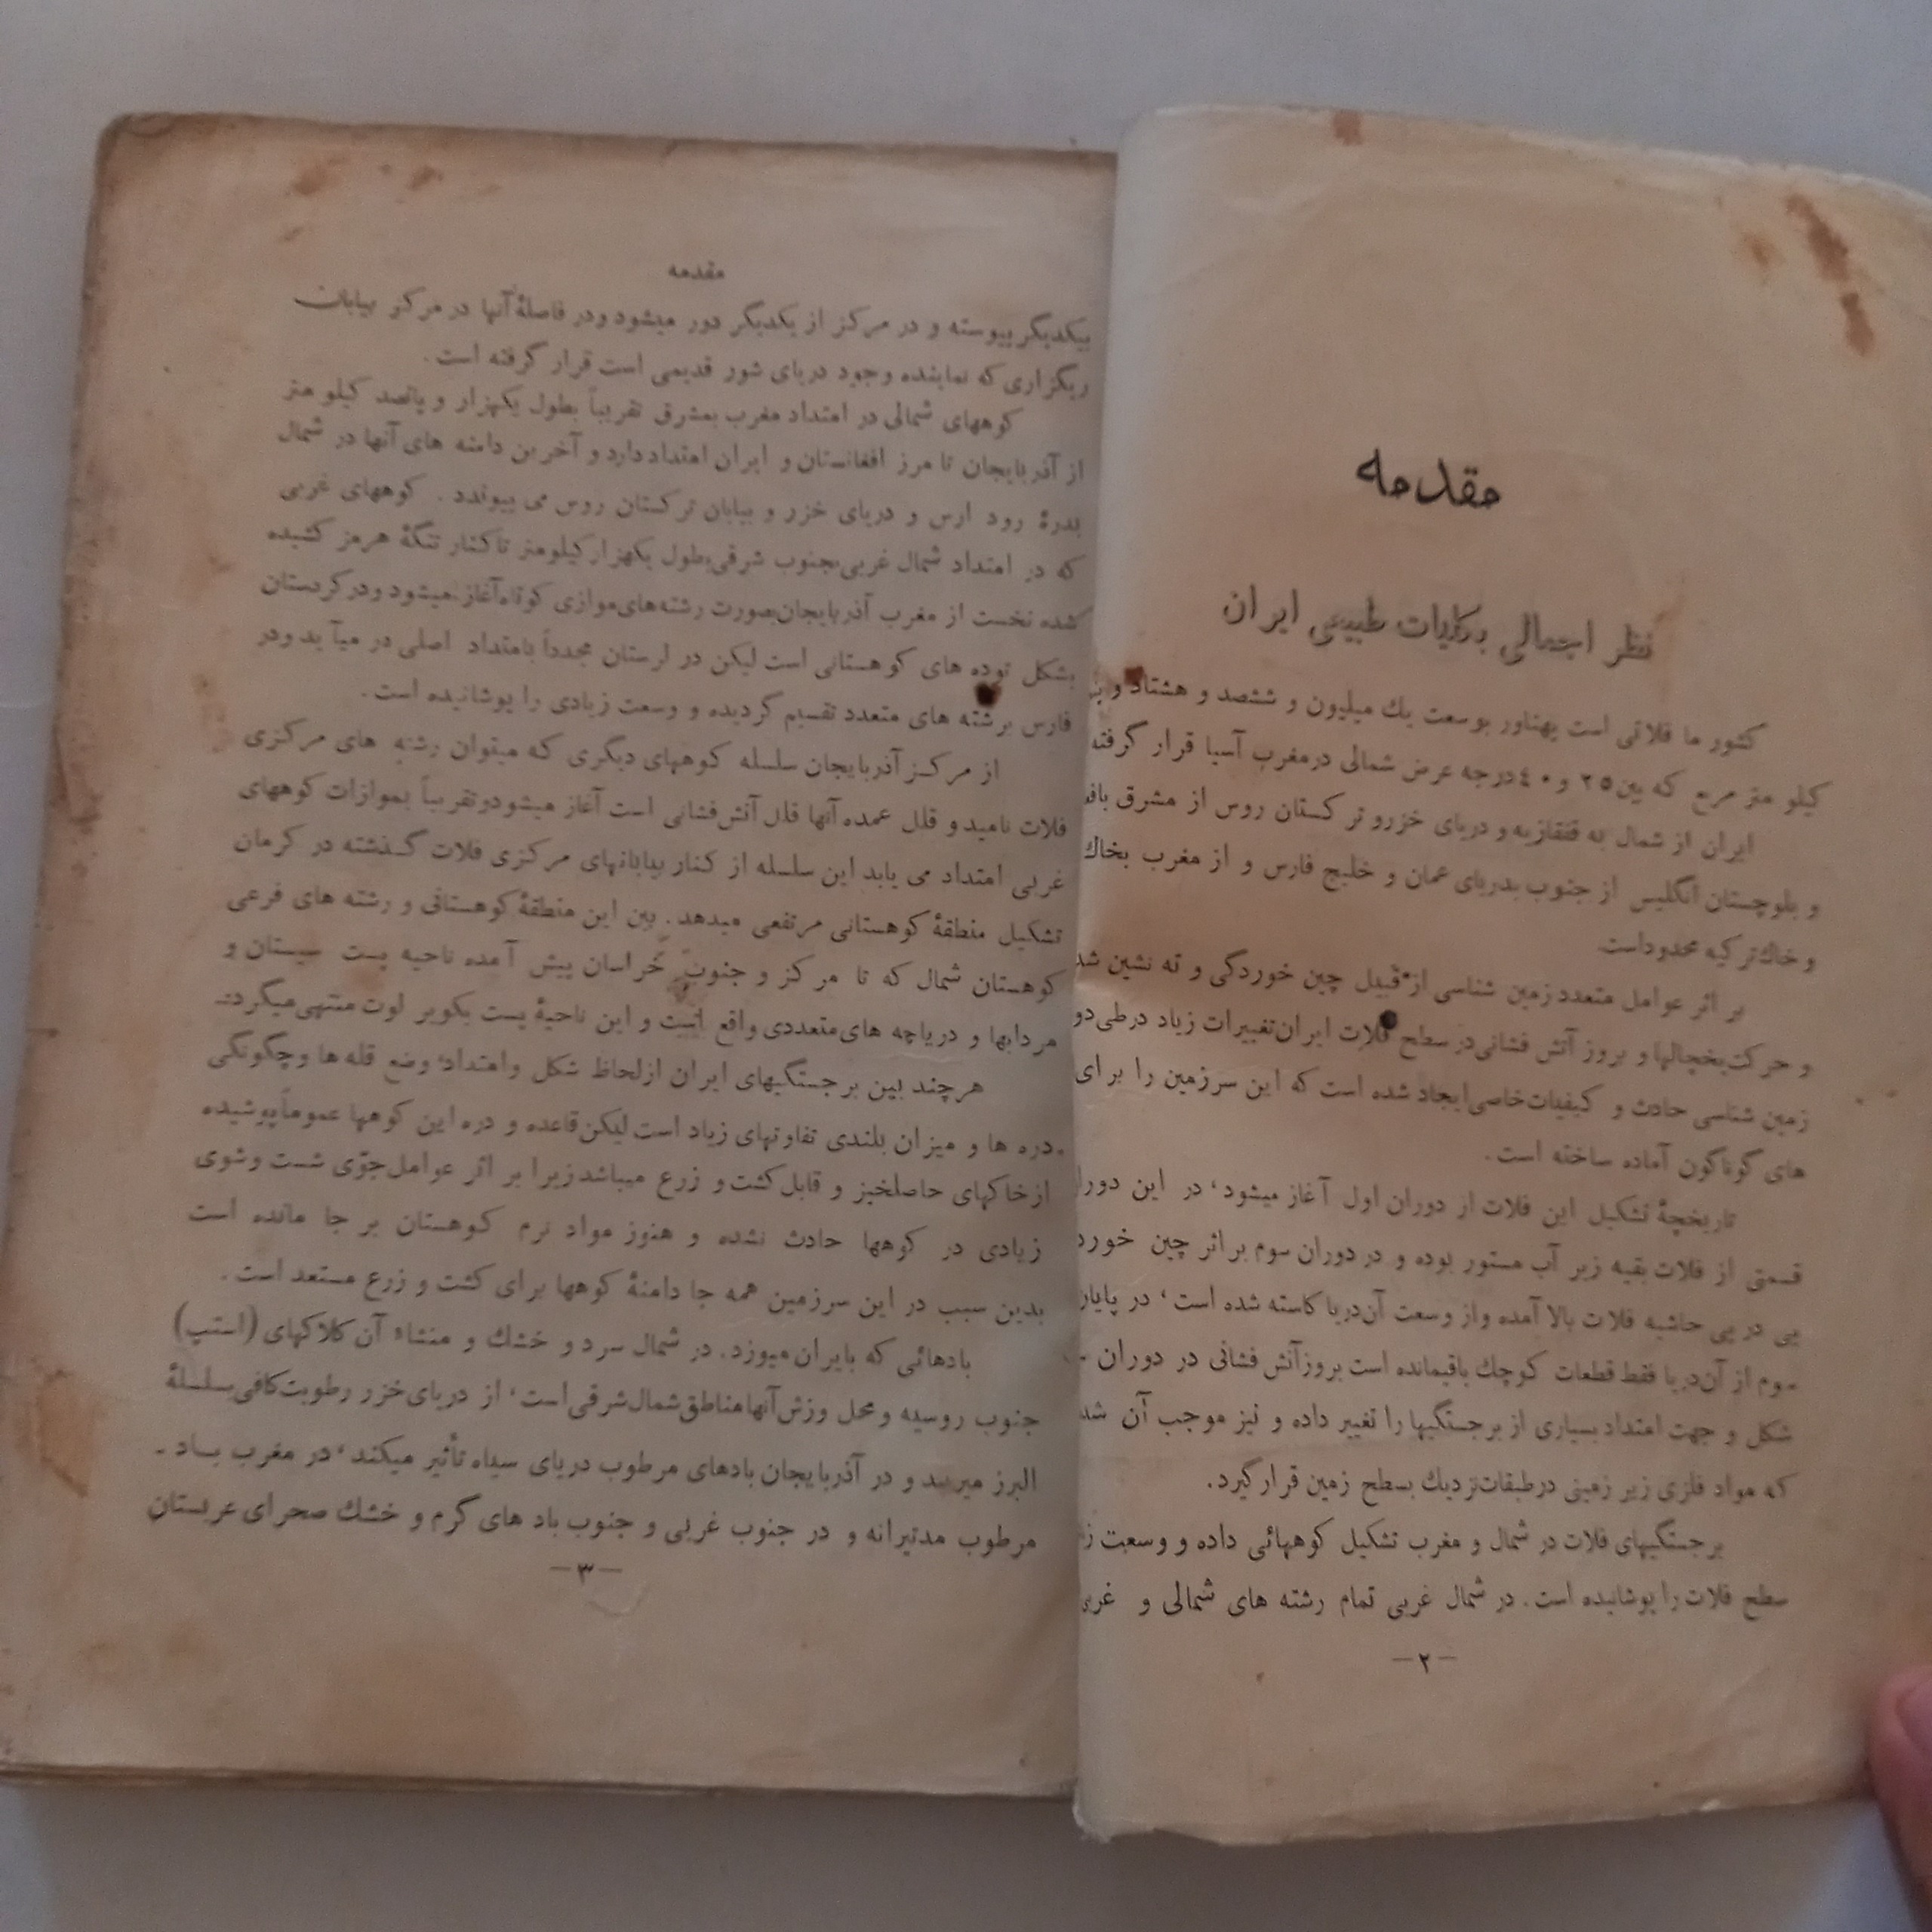 مقدمه
نظر اجمالی بکلیات طبیعی ایران
کشور ما فلاتی است پهناور بوسعت یك میلیون و ششصد و هشتاد و
کیلو متر مربع که بین ۲۵ و ۴۰ درجه عرض شمالی درمغرب آسیا قرار گرفته
ایران از شمال به قفقازیه و دریای خزرو ترکستان روس از مشرق
و بلوچستان انگلیس از جنوب بدریای عمان و خلیج فارس و از مغرب بخاك
و خاك ترکیه محدوداست
بر اثر عوامل متعدد زمین شناسی از قبیل چین خوردگی و ته نشین شد
و حرکت یخچالها و بروز آتش فشانی در سطح فلات ایران تغییرات زیاد درطی
زمین شناسی حادث و کیفیات خاصی ایجاد شده است که این سرزمین را برای
های گوناگون آماده ساخته است .
تاریخچهٔ تشکیل این فلات از دوران اول آغاز میشود، در این
قسمتی از فلات بقیه زیر آب مستور بوده و در دوران سوم بر اثر چین خورد
پی در پی حاشیه فلات بالا آمده واز وسعت آن دریا کاسته شده است، در
سوم از آن دریا فقط قطعات کوچك باقیمانده است بروز آتش فشانی در دوران
شکل و جهت امتداد بسیاری از برجستگیها را تغییر داده و نیز موجب آن شد
که مواد فلزی زیر زمینی درطبقات نزدیك بسطح زمین قرار گیرد.
برجستگیهای فلات در شمال و مغرب تشکیل کوههائی داده و وسعت
سطح فلات را پوشانیده است . در شمال غربی تمام رشته های شمالی و غربی
—۲—
مقدمه
بیکدیگر پیوسته و در مرکز از یکدیگر دور میشود ودر فاصلهٔ آنها در مرکز بیابان
ریگزاری که نماینده وجود دریای شور قدیمی است قرار گرفته است .
کوههای شمالی در امتداد مغرب بمشرق تقریباً بطول یکهزار و پانصد کیلو متر
از آذربایجان تا مرز افغانستان و ایران امتداد دارد و آخرین دامنه های آنها در شمال
بدرهٔ رود ارس و دریای خزر و بیابان ترکستان روس می پیوندد . کوههای غربی
که در امتداد شمال غربی بجنوب شرقی بطول یکهزار کیلومتر تا کنار تنگهٔ هرمز کشیده
شده نخست از مغرب آذربایجان بصورت رشته های موازی کوتاه آغاز میشود ودر کردستان
بشکل توده های کوهستانی است لیکن در لرستان مجدداً بامتداد اصلی در میآید ودر
فارس برشته های متعدد تقسیم گردیده و وسعت زیادی را پوشانیده است .
از مرکز آذربایجان سلسله کوههای دیگری که میتوان رشته های مرکزی
فلات نامید و قلل عمده آنها قلل آتش فشانی است آغاز میشود و تقریباً بموازات کوههای
غربی امتداد می یابد این سلسله از کنار بیابانهای مرکزی فلات گذشته در کرمان
تشکیل منطقهٔ کوهستانی مرتفعی میدهد . بین این منطقهٔ کوهستانی و رشته های فرعی
کوهستان شمال که تا مرکز و جنوب خراسان پیش آمده ناحیه پست سیستان و
مردابها و دریاچه های متعددی واقع است و این ناحیهٔ پست بکویر لوت منتهی میگردد
هرچند بین برجستگیهای ایران ازلحاظ شکل وامتداد، وضع قله ها وچگونگی
دره ها و میزان بلندی تفاوتهای زیاد است لیکن قاعده و دره این کوهها عموماً پوشیده
ازخاکهای حاصلخیز و قابل کشت و زرع میباشد زیرا بر اثر عوامل جوّی شست وشوی
زیادی در کوهها حادث نشده و هنوز مواد نرم کوهستان بر جا مانده است
بدین سبب در این سرزمین همه جا دامنهٔ کوهها برای کشت و زرع مستعد است .
بادهائی که بایران میوزد. در شمال سرد و خشك و منشاء آن کلاكهای (استپ)
جنوب روسیه و محل وزش آنها مناطق شمال شرقی است، از دریای خزر رطوبت کافی بسلسلهٔ
البرز میرسد و در آذربایجان بادهای مرطوب دریای سیاه تأثیر میکند، در مغرب بـاد ـ
مرطوب مدتیرانه و در جنوب غربی و جنوب باد های گرم و خشك صحرای عربستان
—۳—